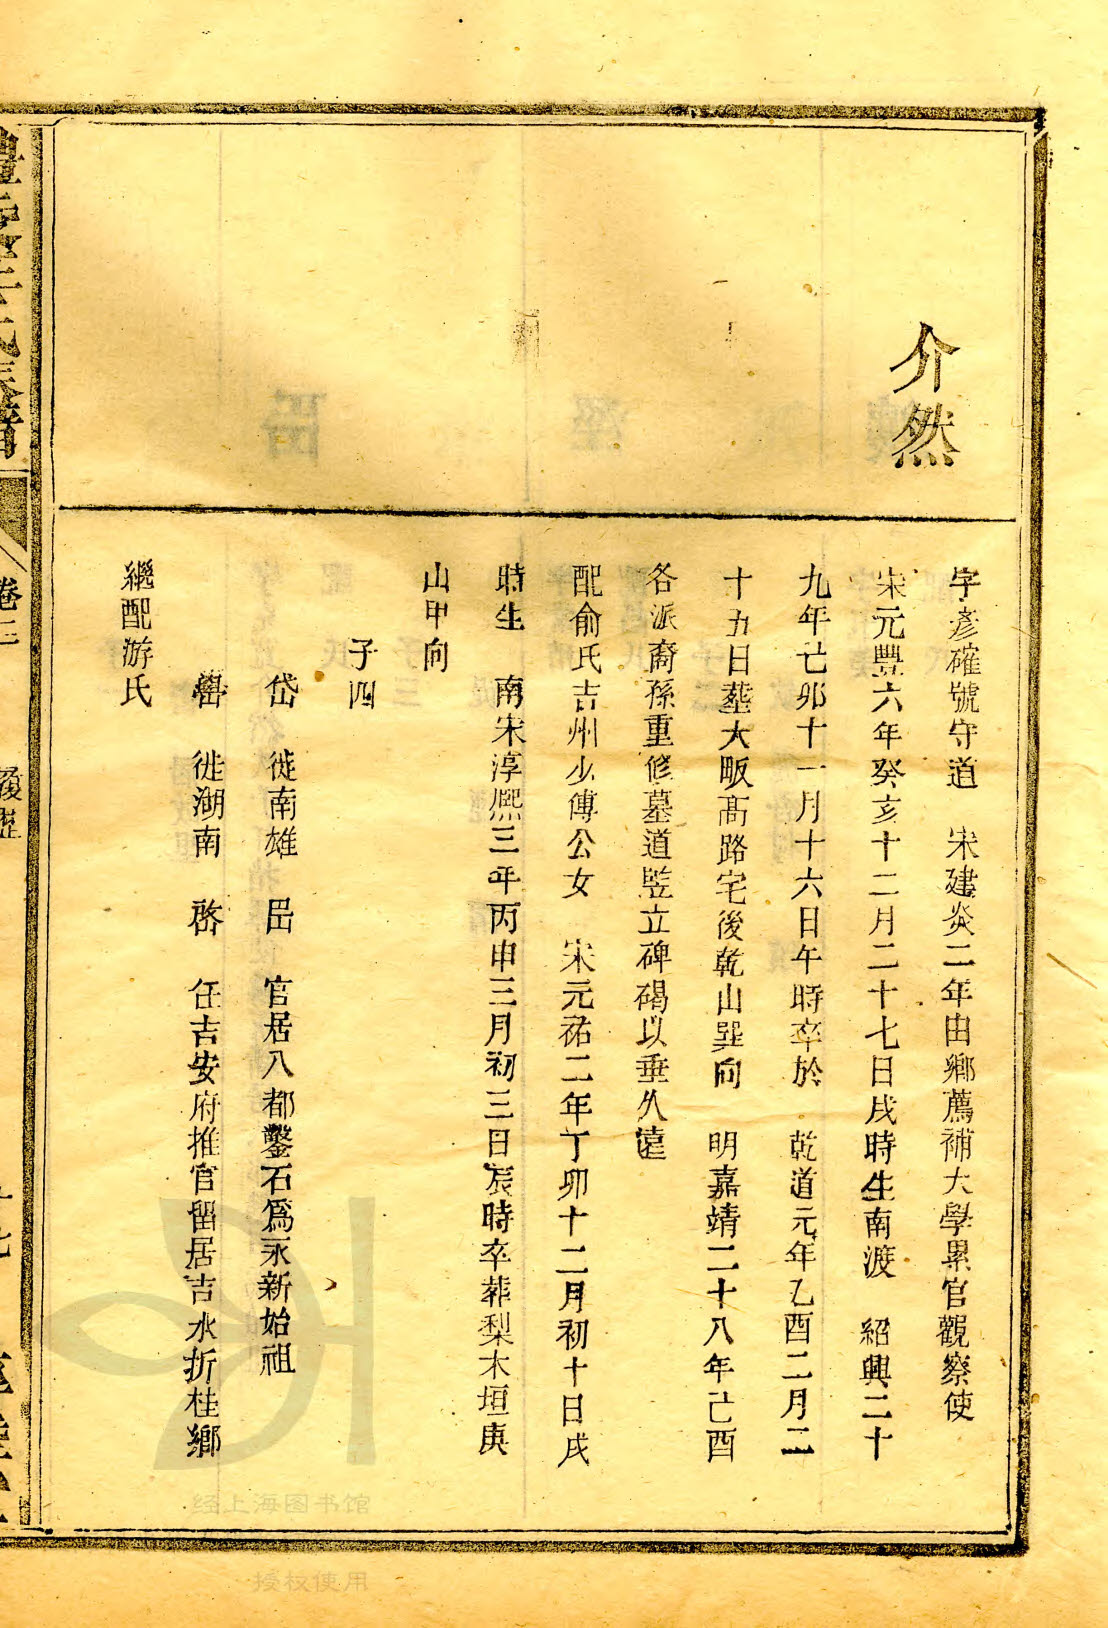 介然
字彥確號守道 宋建炎二年由鄉薦補大學累官觀察使
宋元豐六年癸亥十二月二十七日戌時生南渡 紹興二十
九年己卯十一月十六日午時卒於 乾道元年乙酉二月二
十五日塟大畈高路宅後乾山巽向 明嘉靖二十八年己酉
各派裔孫重修墓道竪立碑碣以垂久遠
配俞氏吉州少傅公女 宋元祐二年丁卯十二月初十日戌
時生 南宋淳熈三年丙申三月初三日辰時卒葬梨木垣庚
山甲向
子四
岱 徙南雄 岊 官居八都鑿石爲永新始祖
嚳 徙湖南 啓 任吉安府推官留居吉水折桂鄉
繼配游氏
氏
卷三
履歷
经上海图书馆
授权使用